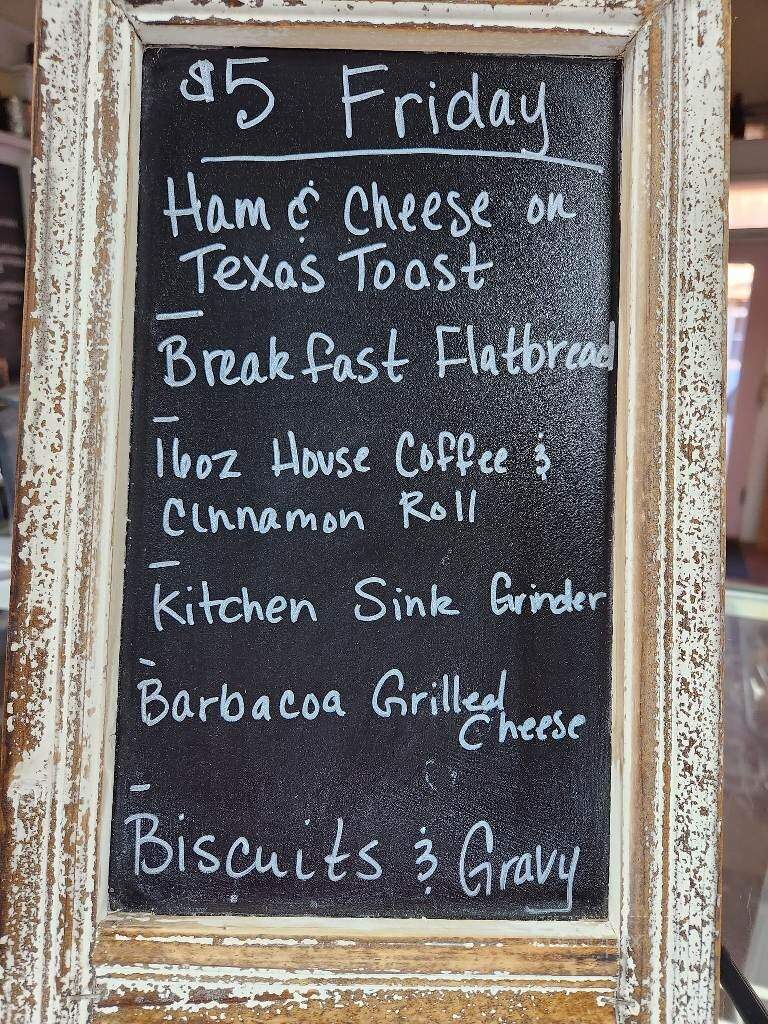 $5 Friday
Ham & Cheese on
Texas Toast
—
Breakfast Flatbread
—
16oz House Coffee &
Cinnamon Roll
—
Kitchen Sink Grinder
-
Barbacoa Grilled
Cheese
-
Biscuits & Gravy